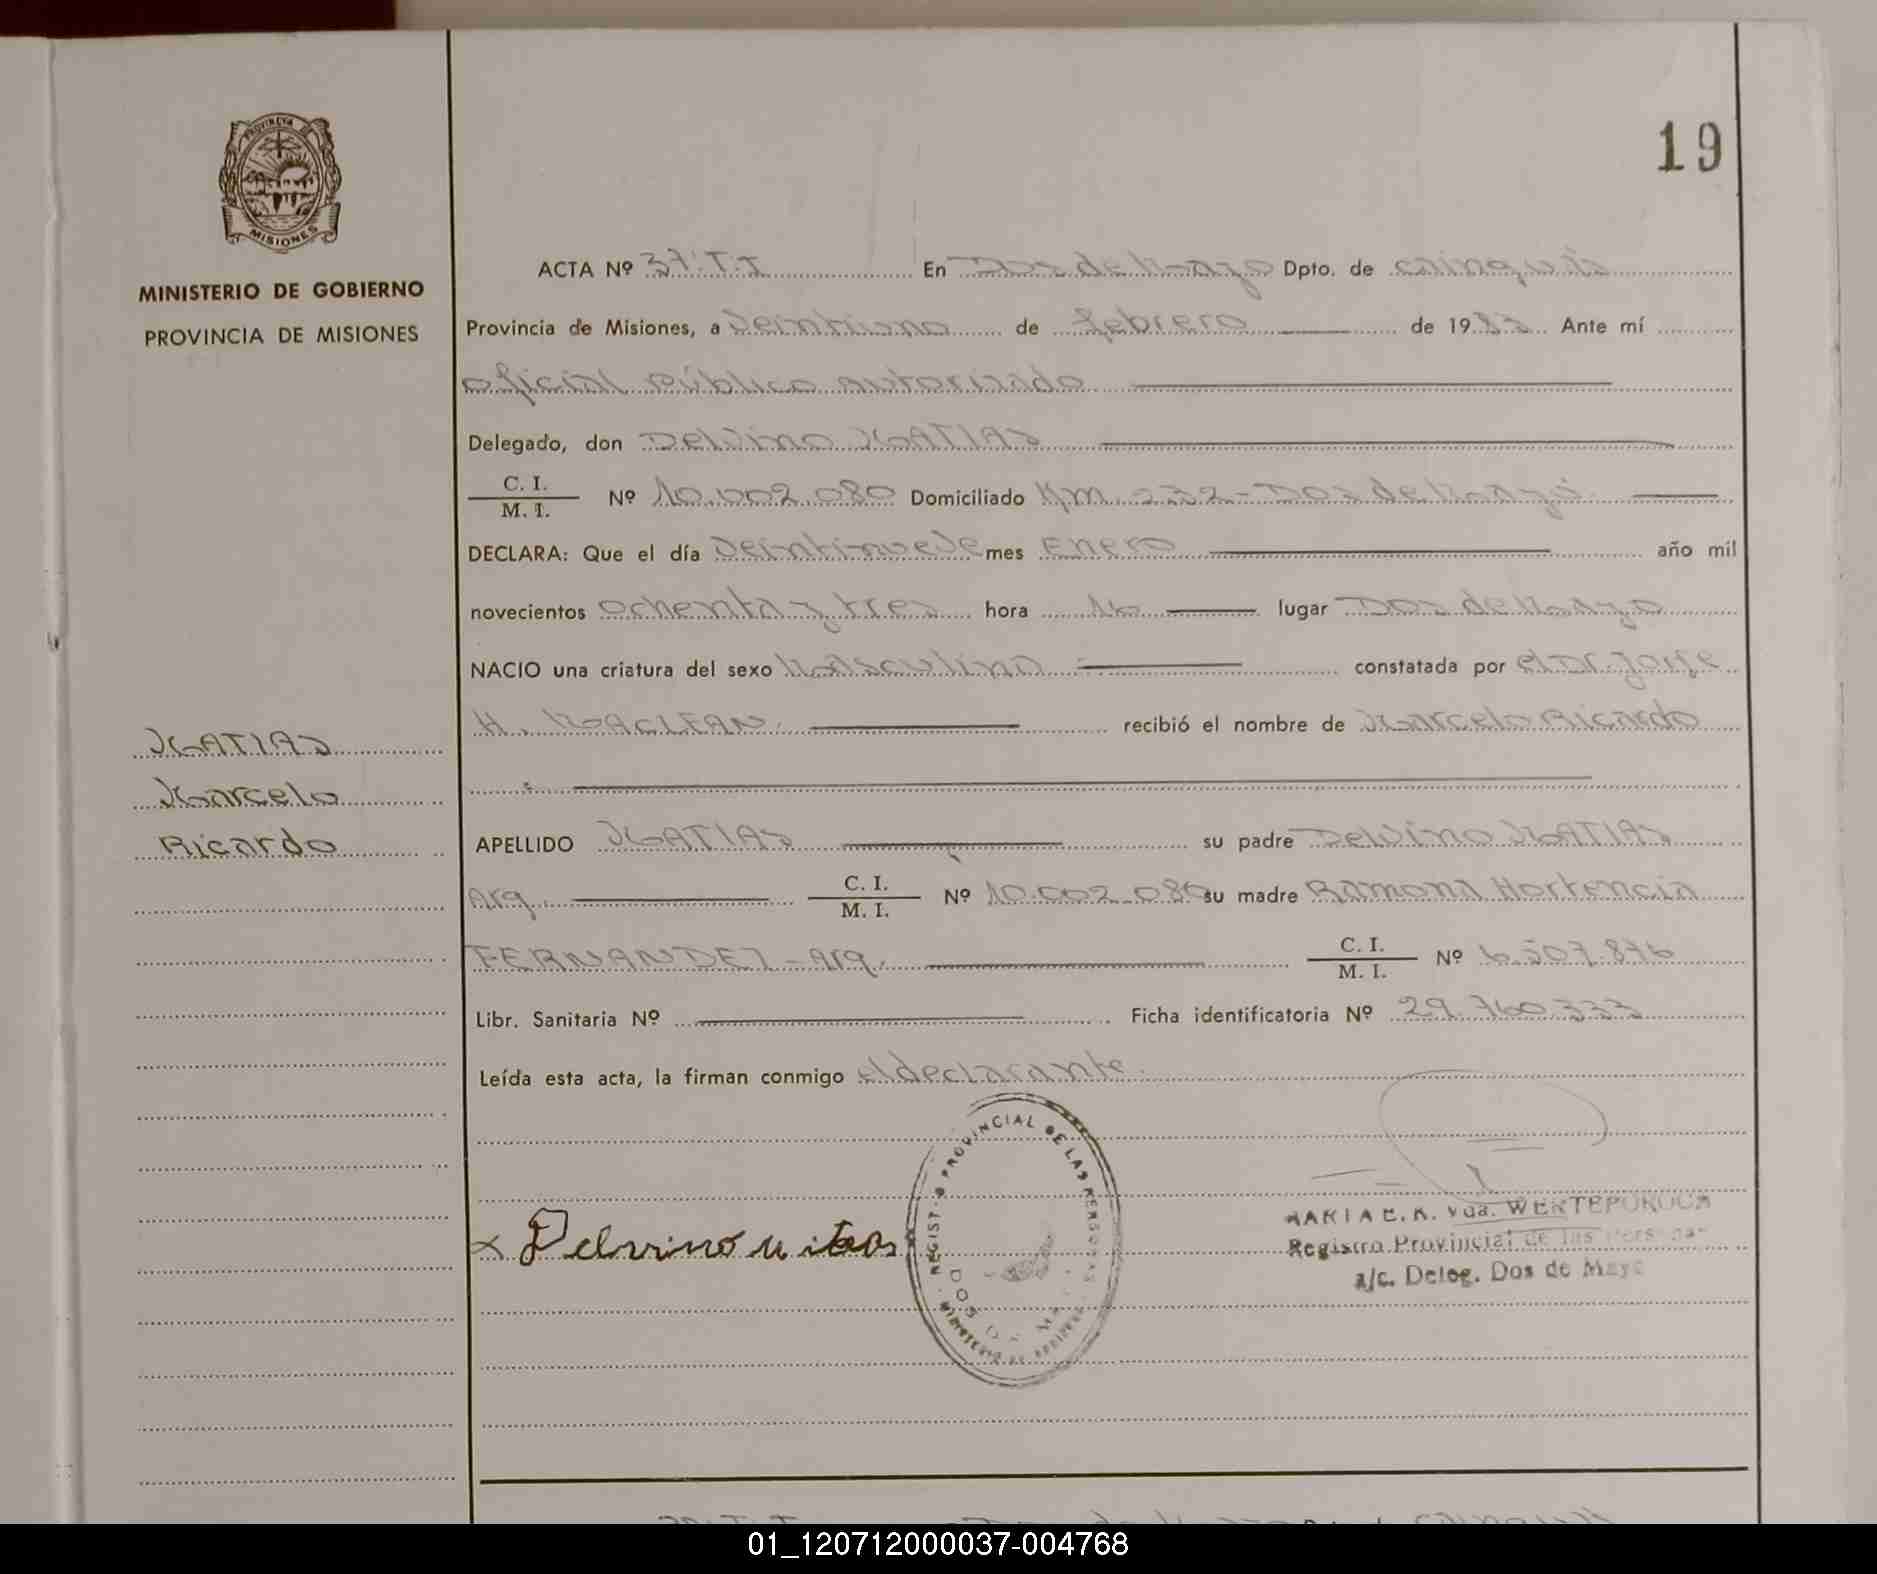 19
PROVINCIA DE
MISIONES
MINISTERIO DE GOBIERNO
PROVINCIA DE MISIONES
ACTA Nº 37 T.I En Dos de Mayo Dpto. de Cainguás
Provincia de Misiones, a Veintiuno de febrero de 1983 Ante mí
oficial público autorizado
Delegado, don Delvino MATIAS
C. I.
M. I. Nº 10.002.080 Domiciliado Km 232 - Dos de Mayo
DECLARA: Que el día Veintinueve mes Enero año mil
novecientos ochenta y tres hora 16 lugar Dos de Mayo
NACIO una criatura del sexo Masculino constatada por el Dr. Jorge
H. MACLEAN. recibió el nombre de Marcelo Ricardo
MATIAS
Marcelo
Ricardo
APELLIDO MATIAS su padre Delvino MATIAS
Arg. C. I.
M. I. Nº 10.002.080 su madre Ramona Hortencia
FERNANDEZ - Arg. C. I.
M. I. Nº 6.507.876
Libr. Sanitaria Nº Ficha identificatoria Nº 29.760.333
Leída esta acta, la firman conmigo el declarante.
REGISTRO PROVINCIAL DE LAS PERSONAS
DOS DE MAYO
x Delvino
MARIA E. K. Vda. WERTEPUROCA
Registro Provincial de las Personas
a/c. Deleg. Dos de Mayo
01_120712000037-004768